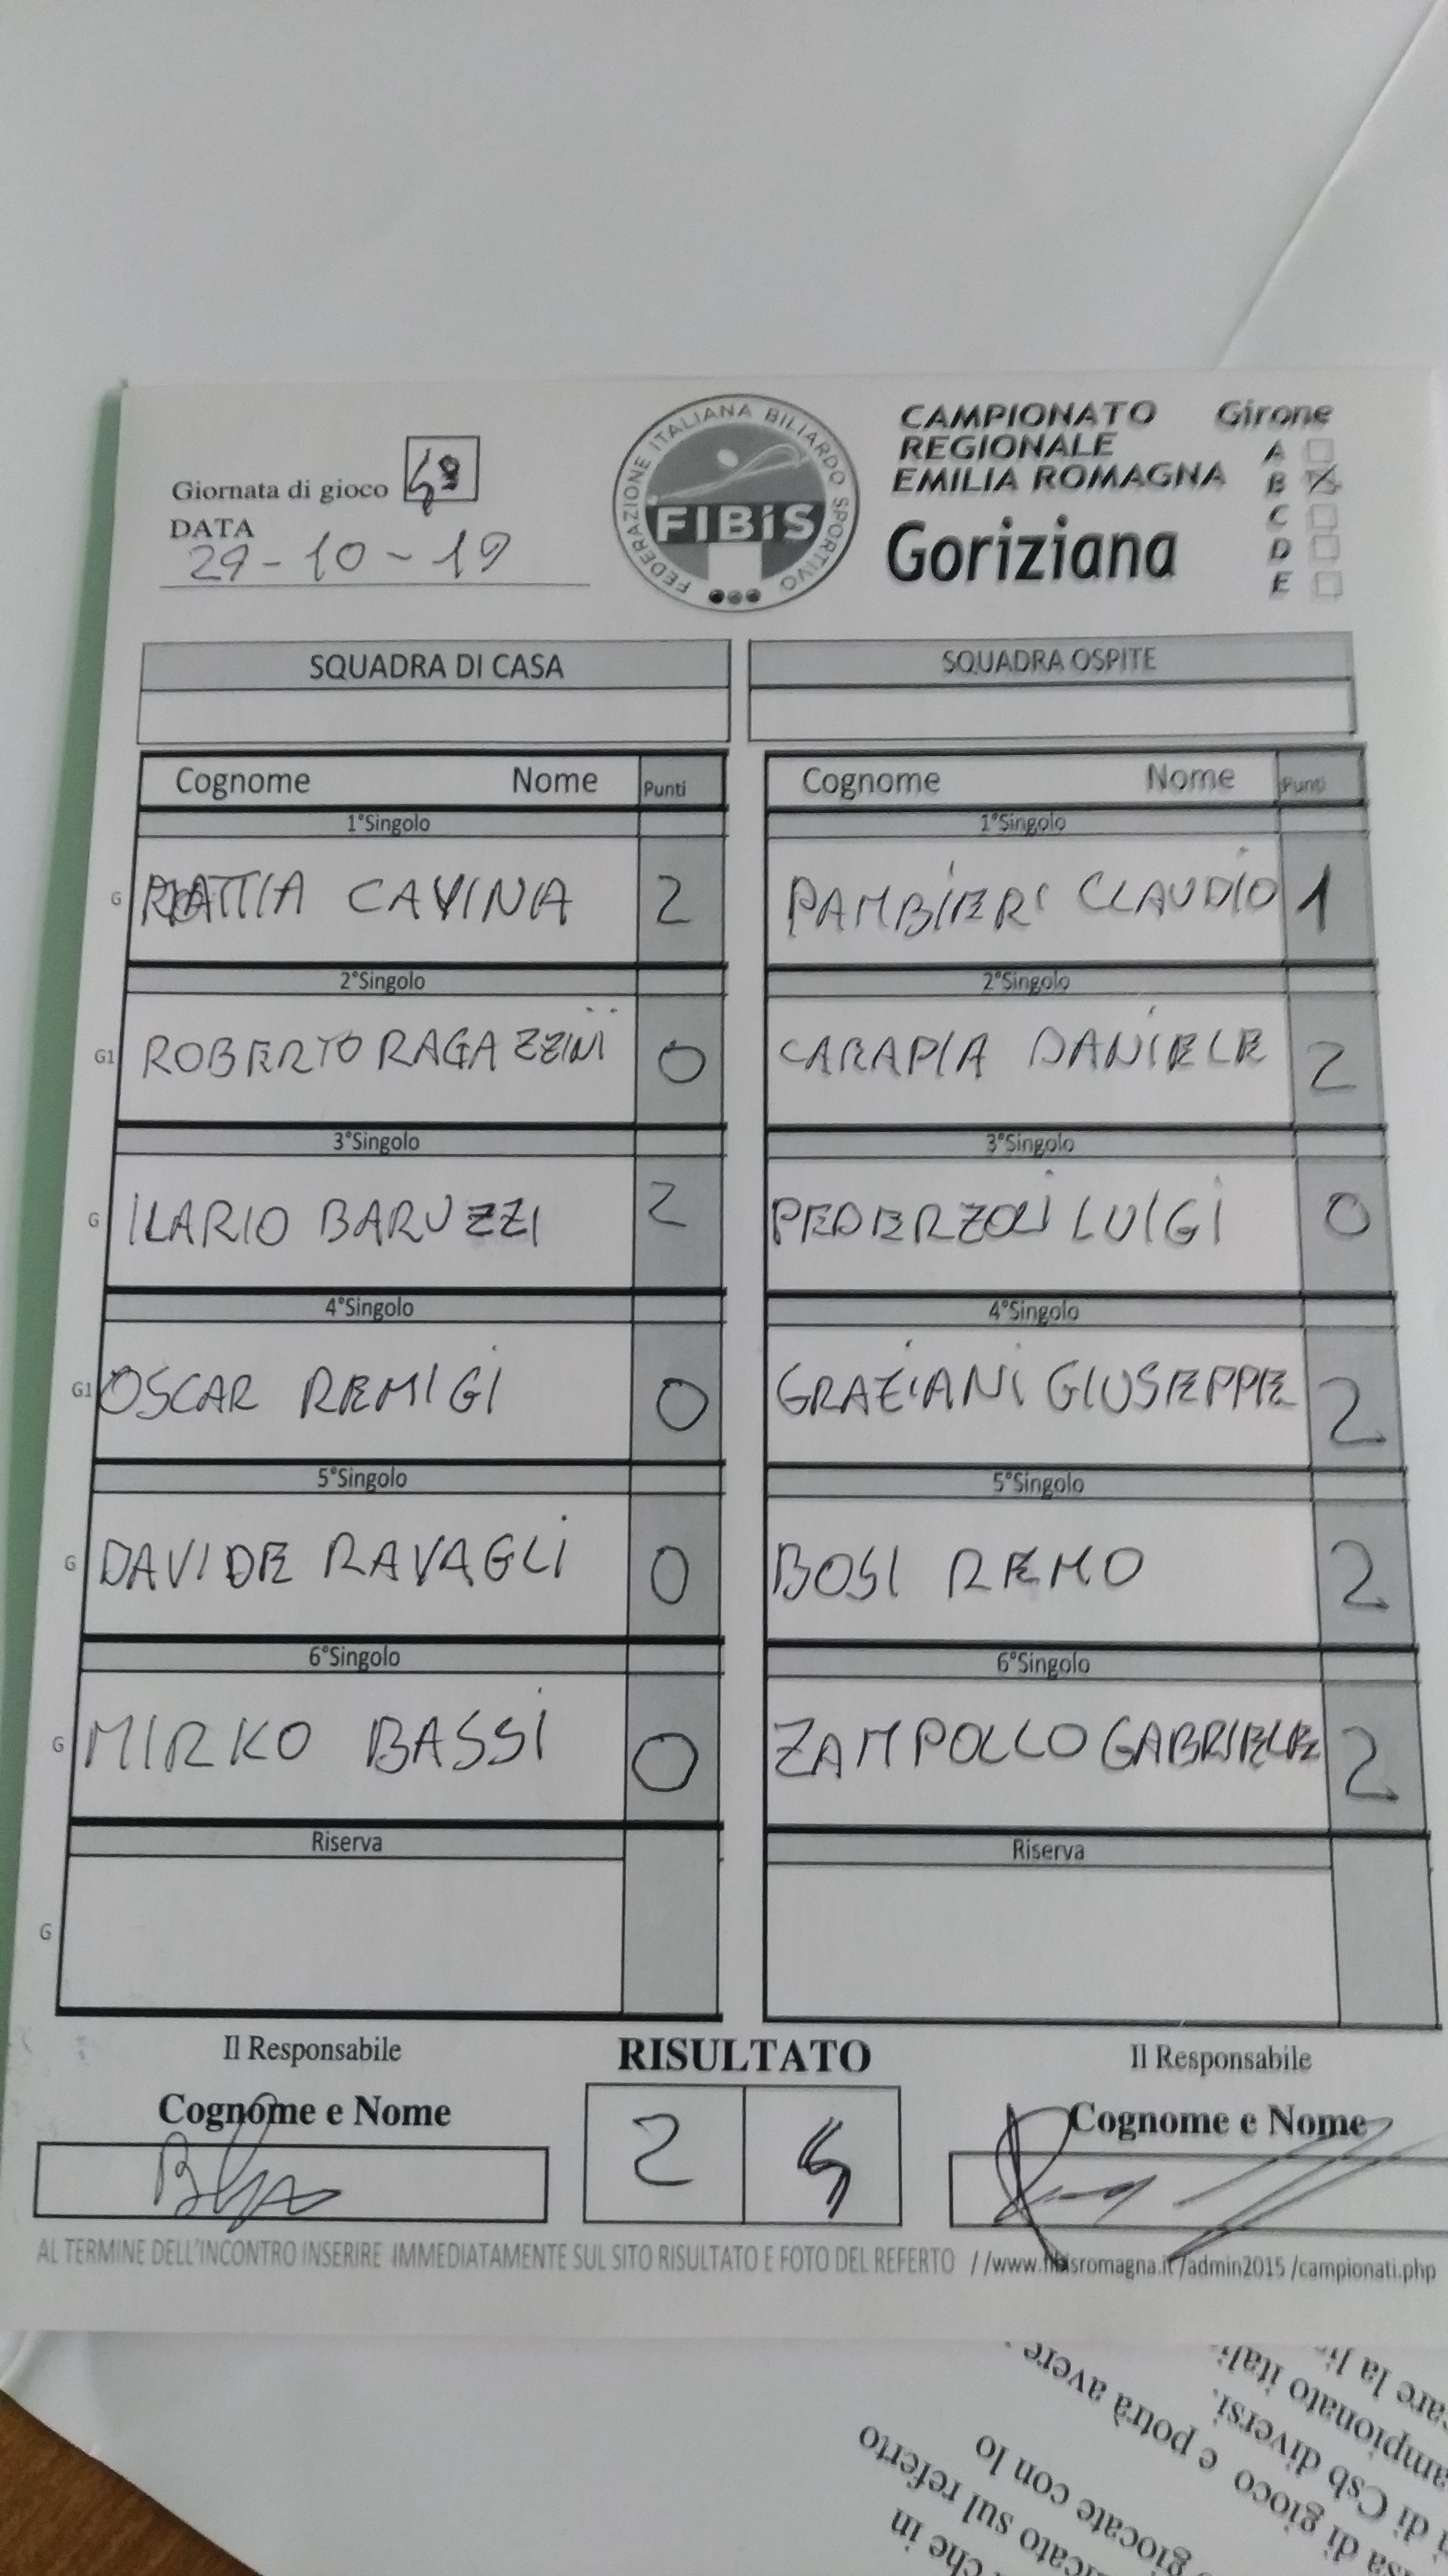 Giornata di gioco
DATA
29-10-19
FEDERAZIONE ITALIANA BILIARDO SPORTIVO
FIBiS
CAMPIONATO
REGIONALE
EMILIA ROMAGNA
Goriziana
Girone
A
B X
C
D
E
SQUADRA DI CASA SQUADRA OSPITE
Cognome Nome Punti Cognome Nome Punti
1°Singolo 1°Singolo
G MATTIA CAVINA 2 PAMBIERI CLAUDIO 1
2°Singolo 2°Singolo
G1 ROBERTO RAGAZZINI 0 CARAPIA DANIELE 2
3°Singolo 3°Singolo
G ILARIO BARUZZI 2 PEDERZOLI LUIGI 0
4°Singolo 4°Singolo
G1 OSCAR REMIGI 0 GRAZIANI GIUSEPPE 2
5°Singolo 5°Singolo
G DAVIDE RAVAGLI 0 BOSI REMO 2
6°Singolo 6°Singolo
G MIRKO BASSI 0 ZAMPOLLO GABRIELE 2
Riserva Riserva
G
Il Responsabile RISULTATO Il Responsabile
Cognome e Nome 2 4 Cognome e Nome
AL TERMINE DELL'INCONTRO INSERIRE IMMEDIATAMENTE SUL SITO RISULTATO E FOTO DEL REFERTO //www.fibisromagna.it/admin2015/campionati.php
che in
icato sul referto
giocate con lo
sa di gioco e potrà avere
di Csb diversi.
ampionato itali
care la